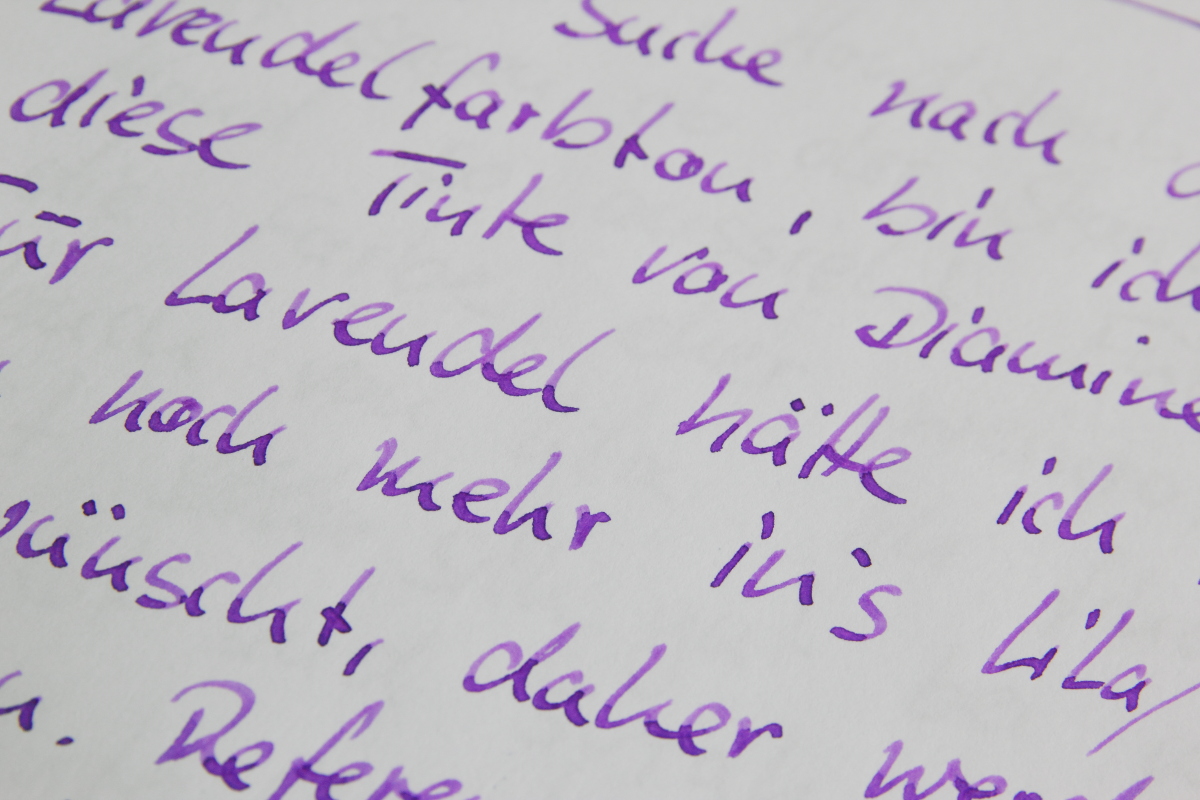 Suche nach
Lavendelfarbton, bin ich
diese Tinte von Diamine
Für Lavendel hätte ich
noch mehr in's Lila/
wünscht, daher
Refere